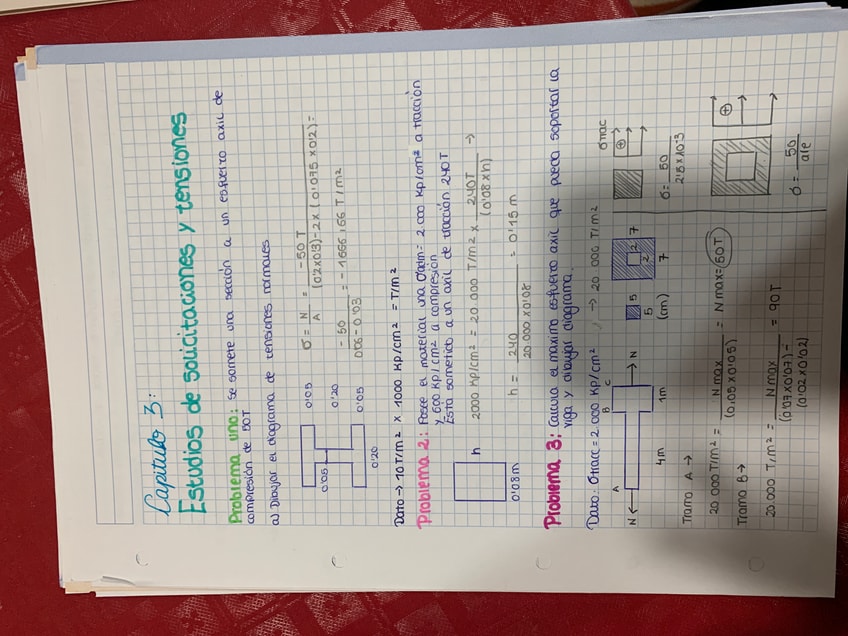 Capitulo 3:
Estudios de solicitaciones y tensiones
Problema uno: Se somete una sección a un esfuerzo axil de
compresión de 50T
a) Dibujar el diagrama de tensiones normales
0'05
0'05
0'20
0'20
σ = N / A = -50 T / (0'2×0'3)-2×(0'075×0'2) =
-50 / 0'06-0'03 = -1666,66 T/m²
Dato → 10T/m² × 1000 Kp/cm² = T/m²
Problema 2: Posee el material una σadm = 2.000 Kp/cm² a tracción
y 600 Kp/cm² a compresión
Está sometido a un axil de tracción 240T
h
0'08m
2000 Kp/cm² = 20.000 T/m² × 240T / (0'08×h) →
h = 240 / 20.000×0'08 = 0'15 m
Problema 3: Calcula el máximo esfuerzo axil que pueda soportar la
viga y dibujar diagrama.
Dato: σtracc = 2.000 Kp/cm² → 20.000 T/m²
A
B
C
N
N
4m
1m
5
5
(cm)
2
2
7
7
σtrac
⊕
Tramo A →
20.000 T/m² = N max / (0'05×0'05) = N max = 50T
σ = 50 / 2'5×10⁻³
Tramo B →
20.000 T/m² = N max / (0'07×0'07)-(0'02×0'02) = 90T
⊕
σ = 50 / are